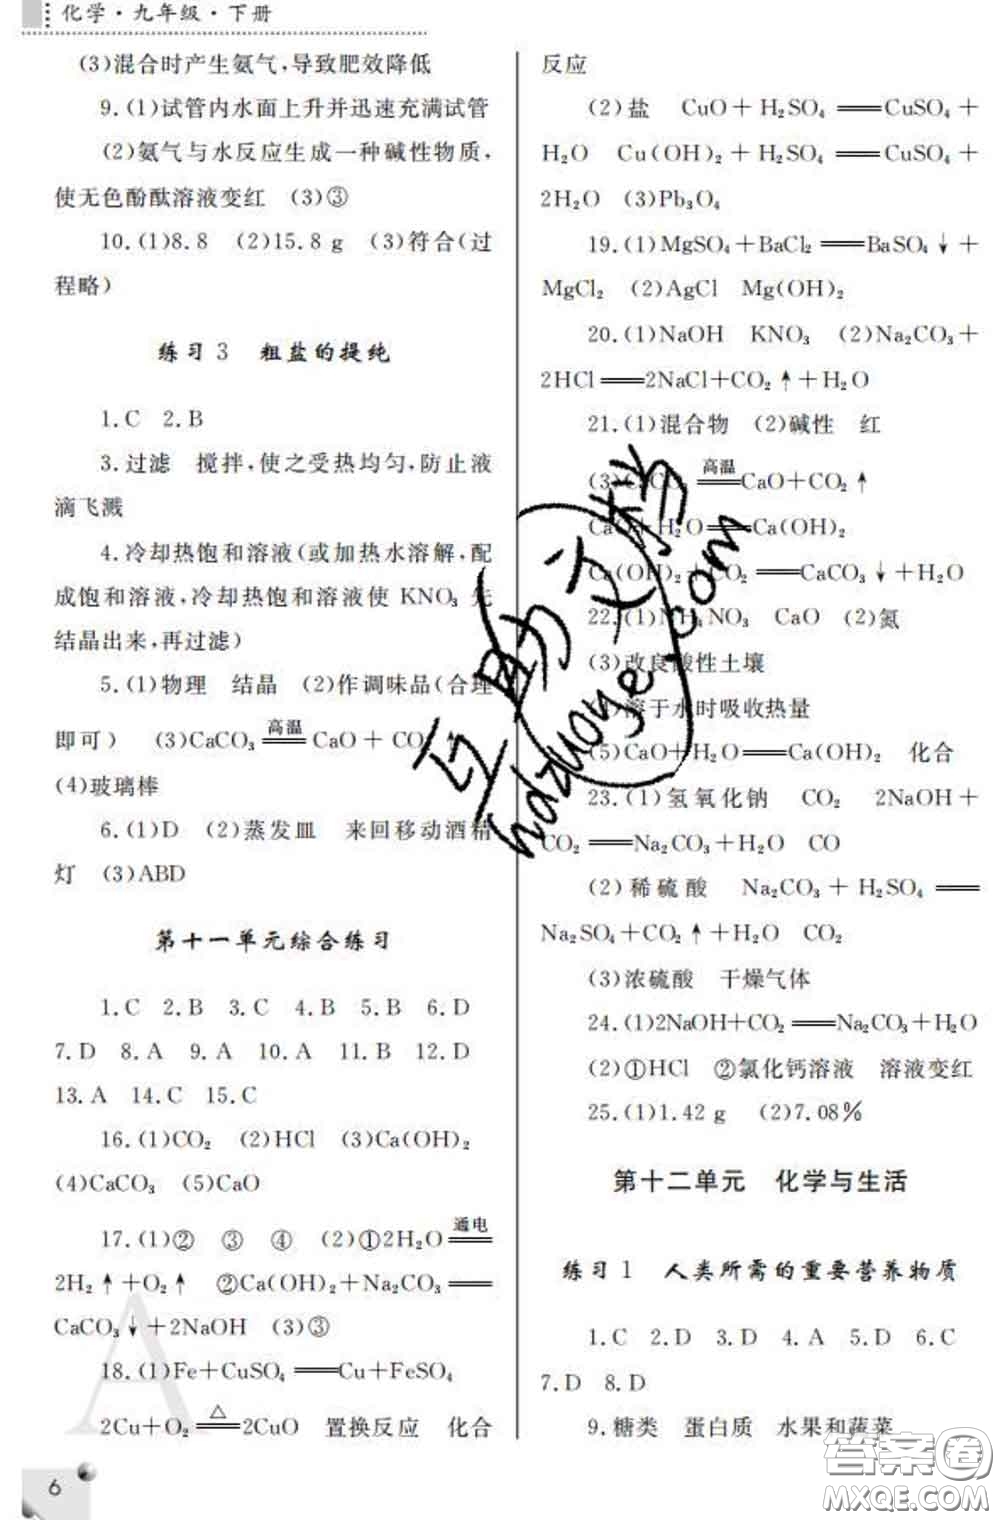 化学·九年级·下册
(3)混合时产生氨气,导致肥效降低
9.(1)试管内水面上升并迅速充满试管
(2)氨气与水反应生成一种碱性物质,
使无色酚酞溶液变红 (3)③
10.(1)8.8 (2)15.8 g (3)符合(过
程略)
练习3 粗盐的提纯
1.C 2.B
3.过滤 搅拌,使之受热均匀,防止液
滴飞溅
4.冷却热饱和溶液(或加热水溶解,配
成饱和溶液,冷却热饱和溶液使 KNO₃ 先
结晶出来,再过滤)
5.(1)物理 结晶 (2)作调味品(合理
即可) (3)CaCO₃ ══高温══ CaO + CO₂ ↑
(4)玻璃棒
6.(1)D (2)蒸发皿 来回移动酒精
灯 (3)ABD
第十一单元综合练习
1.C 2.B 3.C 4.B 5.B 6.D
7.D 8.A 9.A 10.A 11.B 12.D
13.A 14.C 15.C
16.(1)CO₂ (2)HCl (3)Ca(OH)₂
(4)CaCO₃ (5)CaO
17.(1)② ③ ④ (2)①2H₂O ══通电══
2H₂↑+O₂↑ ②Ca(OH)₂+Na₂CO₃ ══
CaCO₃↓+2NaOH (3)③
18.(1)Fe+CuSO₄ ══ Cu+FeSO₄
2Cu+O₂ ══△══ 2CuO 置换反应 化合
6
反应
(2)盐 CuO+H₂SO₄ ══ CuSO₄+
H₂O Cu(OH)₂+H₂SO₄ ══ CuSO₄+
2H₂O (3)Pb₃O₄
19.(1)MgSO₄+BaCl₂ ══ BaSO₄↓+
MgCl₂ (2)AgCl Mg(OH)₂
20.(1)NaOH KNO₃ (2)Na₂CO₃+
2HCl ══ 2NaCl+CO₂↑+H₂O
21.(1)混合物 (2)碱性 红
(3)CaCO₃ ══高温══ CaO+CO₂↑
CaO+H₂O ══ Ca(OH)₂
Ca(OH)₂+CO₂ ══ CaCO₃↓+H₂O
22.(1)NH₄NO₃ CaO (2)氮
(3)改良酸性土壤
(4)溶于水时吸收热量
(5)CaO+H₂O ══ Ca(OH)₂ 化合
23.(1)氢氧化钠 CO₂ 2NaOH+
CO₂ ══ Na₂CO₃+H₂O CO
(2)稀硫酸 Na₂CO₃+H₂SO₄ ══
Na₂SO₄+CO₂↑+H₂O CO₂
(3)浓硫酸 干燥气体
24.(1)2NaOH+CO₂ ══ Na₂CO₃+H₂O
(2)①HCl ②氯化钙溶液 溶液变红
25.(1)1.42 g (2)7.08%
第十二单元 化学与生活
练习1 人类所需的重要营养物质
1.C 2.D 3.D 4.A 5.D 6.C
7.D 8.D
9.糖类 蛋白质 水果和蔬菜
互助文
hdzuoye.com
答案圈
MXQE.COM
A